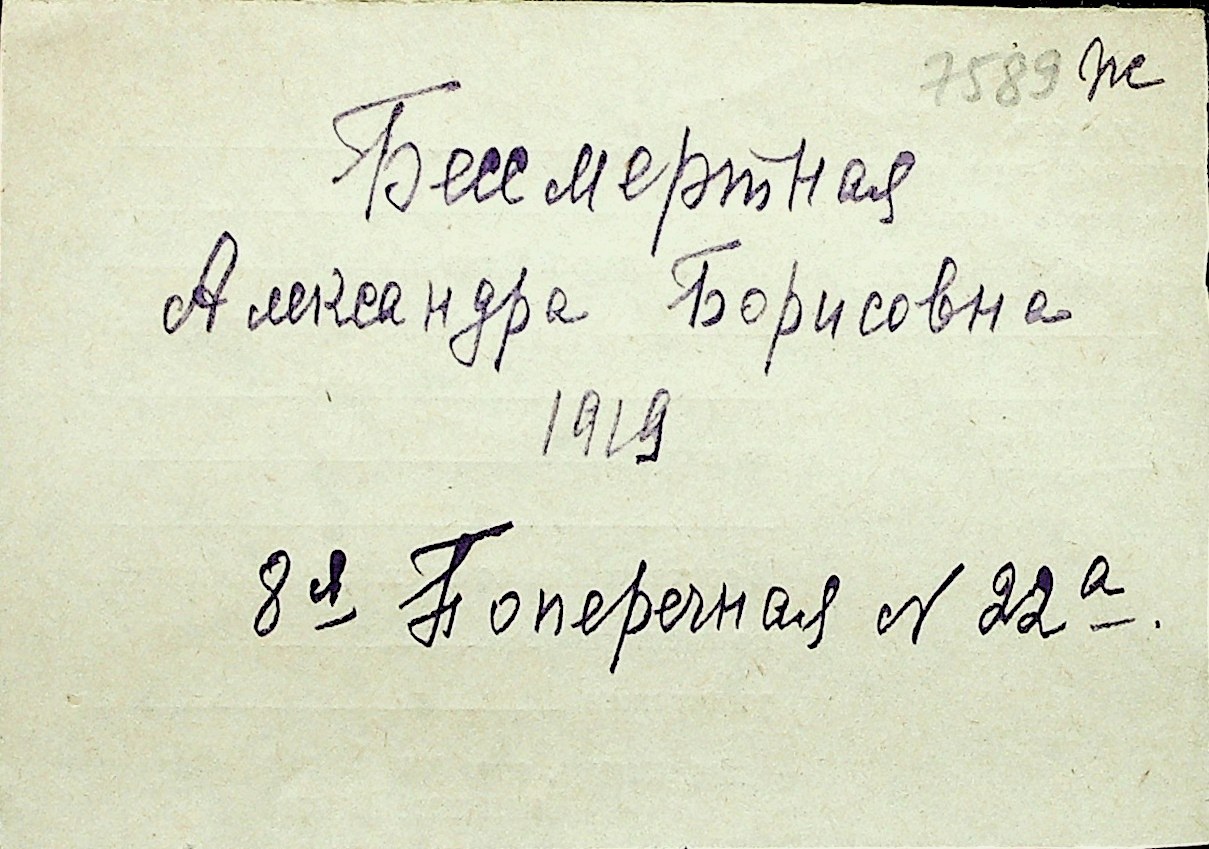 7589 Ж
Бессмертная
Александра Борисовна
1919
8я Поперечная N 22а.